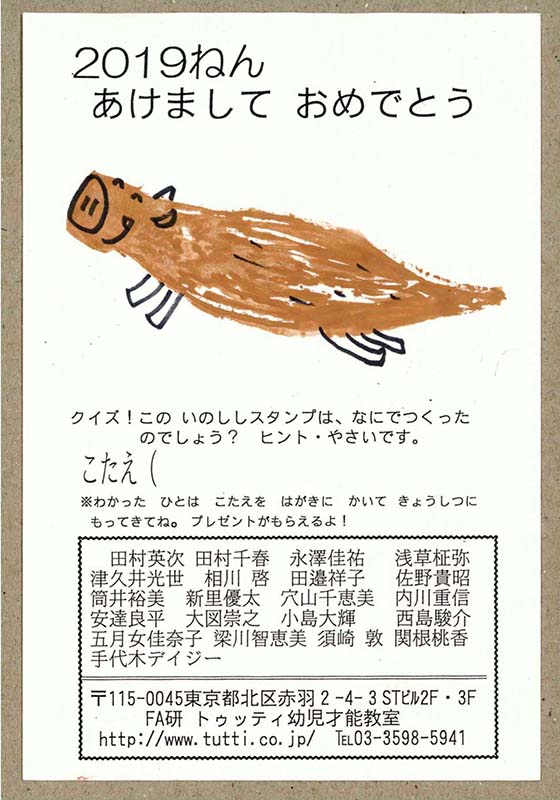 2019ねん
あけまして おめでとう
クイズ!この いのししスタンプは、なにでつくった
のでしょう? ヒント・やさいです。
こたえ (
※わかった ひとは こたえを はがきに かいて きょうしつに
もってきてね。 プレゼントがもらえるよ!
田村英次 田村千春 永澤佳祐 浅草柾弥
津久井光世 相川 啓 田邉祥子 佐野貴昭
筒井裕美 新里優太 穴山千恵美 内川重信
安達良平 大図崇之 小島大輝 西島駿介
五月女佳奈子 梁川智恵美 須崎 敦 関根桃香
手代木デイジー
〒115-0045東京都北区赤羽2-4-3 STビル2F・3F
FA研 トゥッティ幼児才能教室
http://www.tutti.co.jp/ ℡03-3598-5941